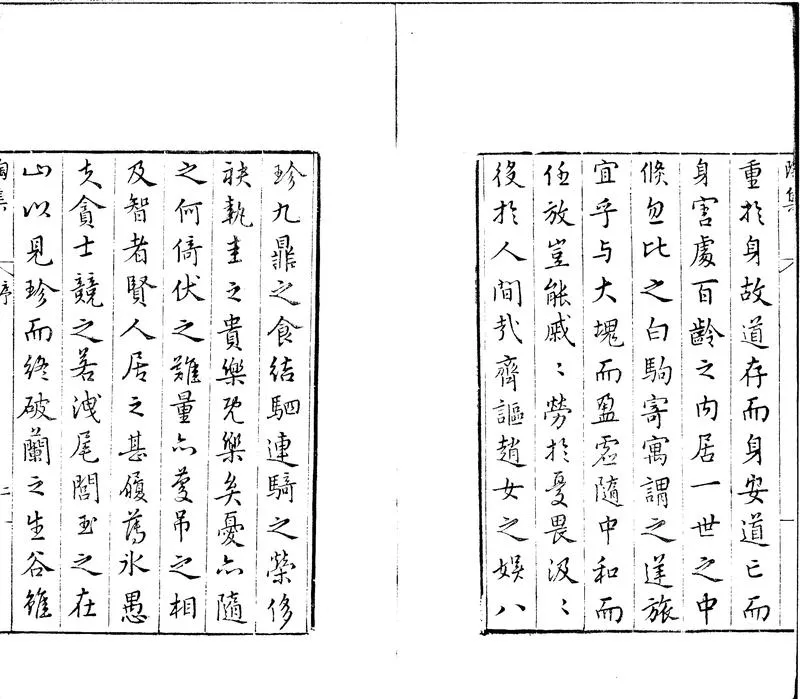 陶集
重於身故道存而身安道亡而
身害處百齡之内居一世之中
倏忽比之白駒寄寓謂之逆旅
宜乎与大塊而盈虛隨中和而
任放豈能戚〻勞於憂畏汲〻
役於人間㢤齊謳趙女之娱八
珍九鼎之食結駟連騎之榮侈
袂執圭之貴樂既樂矣憂亦隨
之何倚伏之難量亦慶吊之相
及智者賢人居之甚履薄氷愚
夫貪士競之若洩尾閭玉之在
山以見珍而終破蘭之生谷雖
陶集
序
二